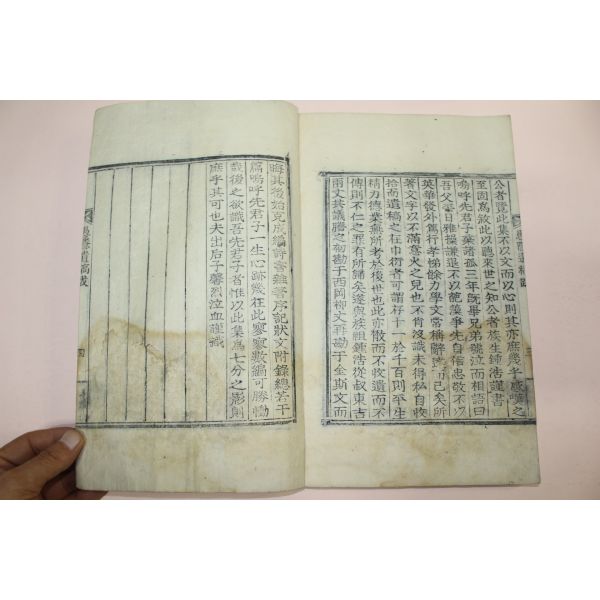 公者覽此集不以文而以心則其亦庶幾乎感嘆之
至因爲敘此以聽來世之知公者族生鍾浩謹書
嗚呼先君子葉諸孤三年旣畢兄弟號泣而相語曰
吾父平日雅操謙退不以葩藻爭先自信忠敬不以
英華發外篤行孝悌餘力學文常稱辭達而已矣所
著文字以不滿奩火之兒也不肖沒識未得私自收
拾而遺稿之在巾衍者可謂存十一於千百則平生
精力德業無所考於後世也此亦散而不收遺而不
傳則不仁之罪有所歸矣遂與族祖鍾浩從叔東吉
兩丈其議謄之初勘于西岡柳丈再勘于金斯文而
晦其後始克成編詩書雜著序記狀文附錄總若干
篇嗚呼先君子一生心跡幾在此寥寥數編可勝慟
哉後之欲識吾先君子者惟以此集爲七分之影則
庶乎其可也夫出后子馨烈泣血謹識
遺稿跋
四